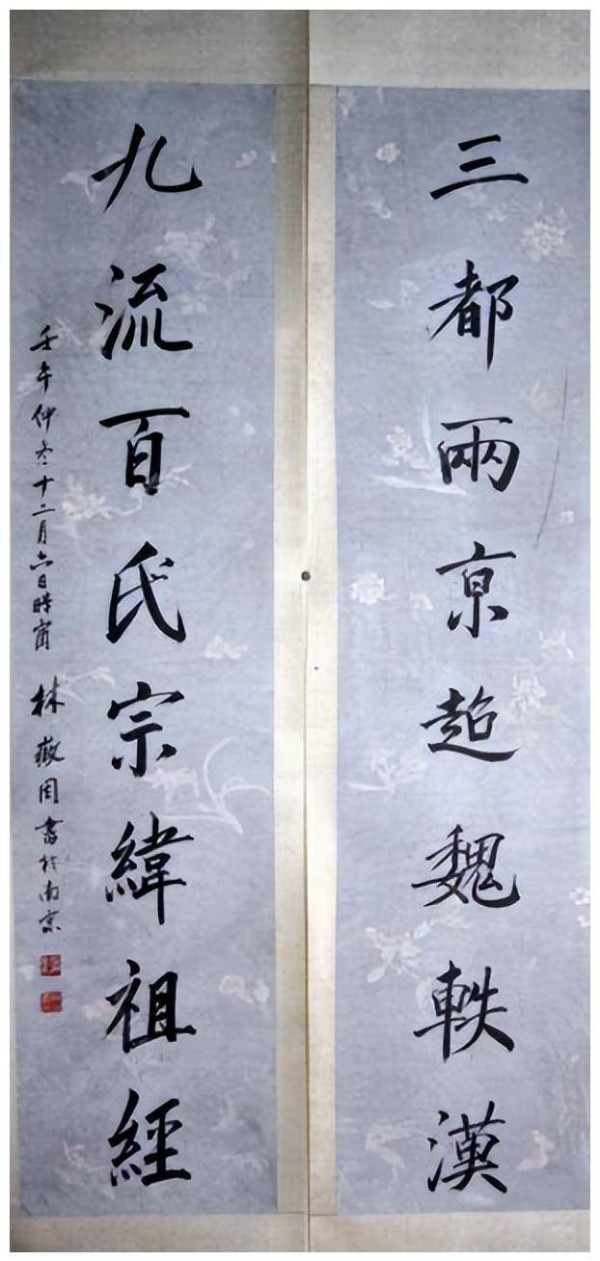 三都兩京超魏軼漢
九流百氏宗緯祖經
壬午仲冬十二月六日時寓 林散周書於南京